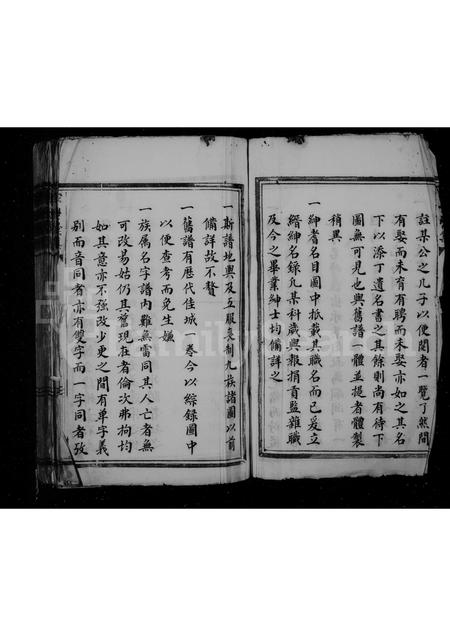 註某公之几子以便閱者一覽了然間
有娶而未育有聘而未娶亦如之其名
下以添丁遺名書之其餘則尚有待下
圖無可見也與舊譜一體並提者體製
稍異
一紳耆名目圖中抵載其職名而已爰立
縉紳名錄凡某科歲與報捐貢監雜職
及今之畢業紳士均備詳之
一斯譜地輿及五服喪制九族諸圖以前
備詳故不贅
一舊譜有歷代佳城一卷今以綜錄圖中
以便查考而免生嫌
一族属名字譜內難無雷同其人亡者無
可改易姑仍其舊現在者倫次弗拘均
如其意亦不强改少更之間有單字義
别而音同者亦有雙字而一字同者攷